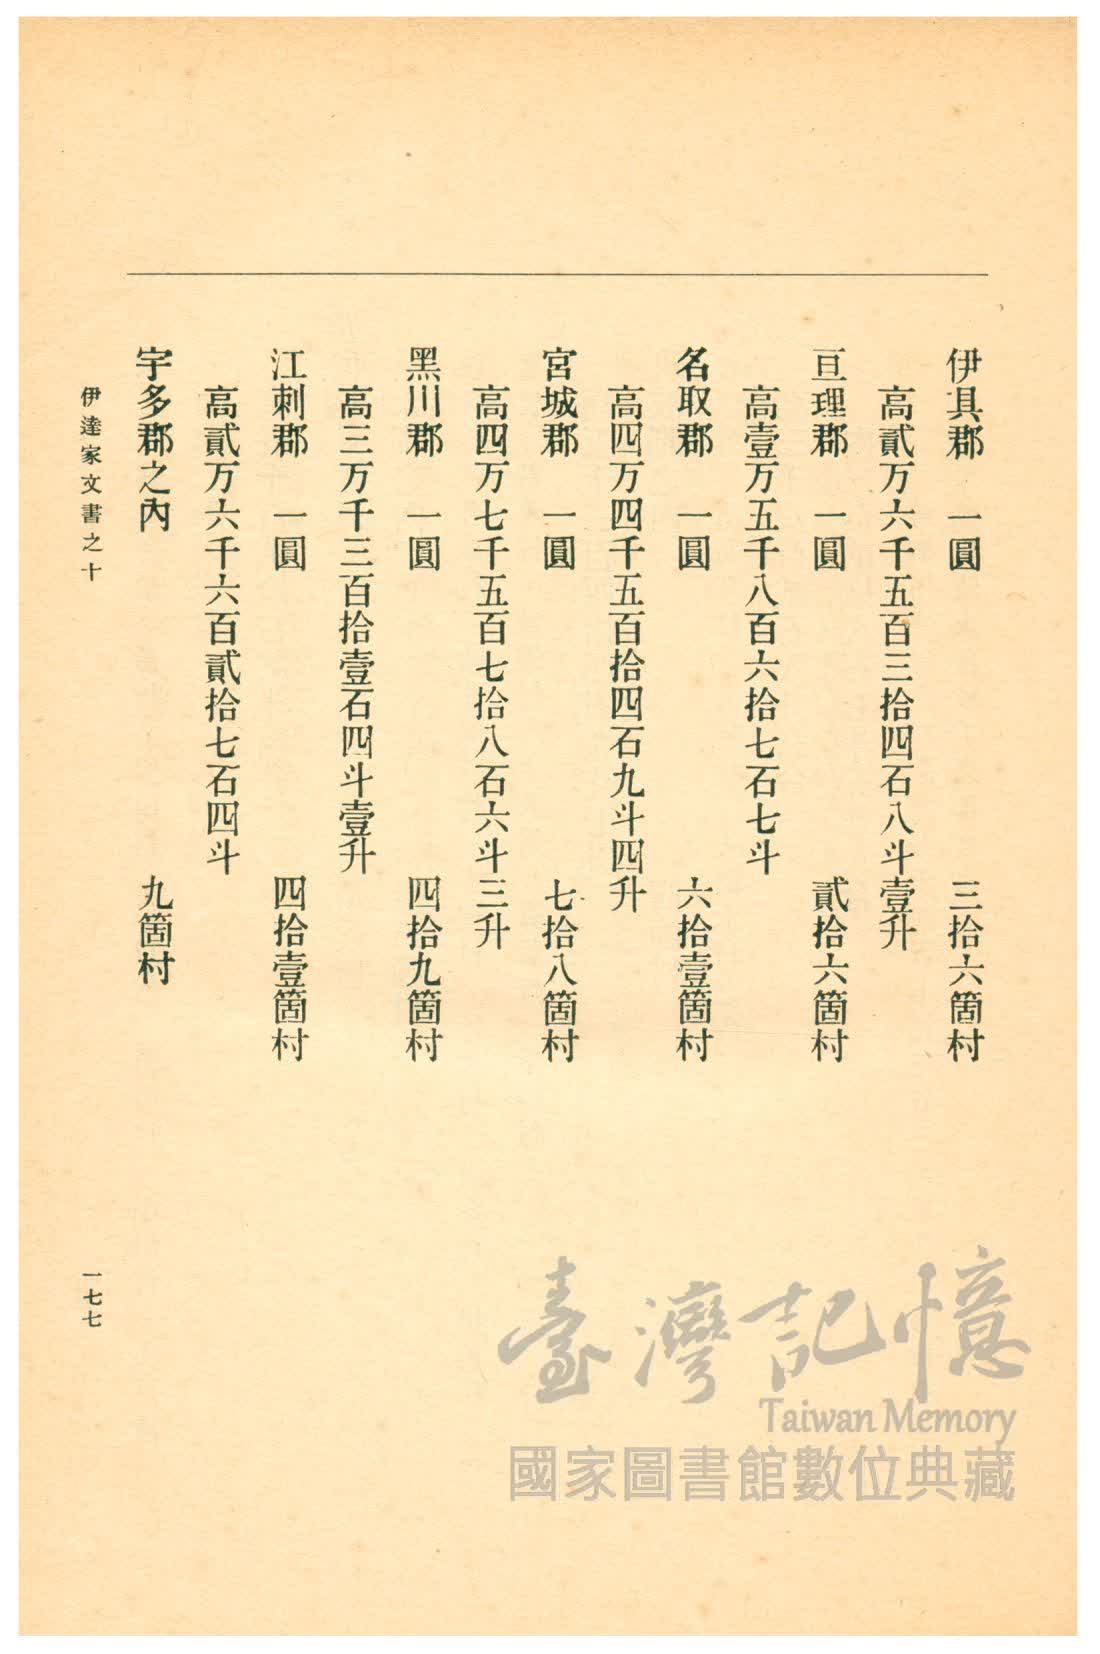 伊具郡　一圓　三拾六箇村
高貳万六千五百三拾四石八斗壹升
亘理郡　一圓　貳拾六箇村
高壹万五千八百六拾七石七斗
名取郡　一圓　六拾壹箇村
高四万四千五百拾四石九斗四升
宮城郡　一圓　七拾八箇村
高四万七千五百七拾八石六斗三升
黑川郡　一圓　四拾九箇村
高三万千三百拾壹石四斗壹升
江刺郡　一圓　四拾壹箇村
高貳万六千六百貳拾七石四斗
宇多郡之內　九箇村
伊達家文書之十
一七七
臺灣記憶
Taiwan Memory
國家圖書館數位典藏